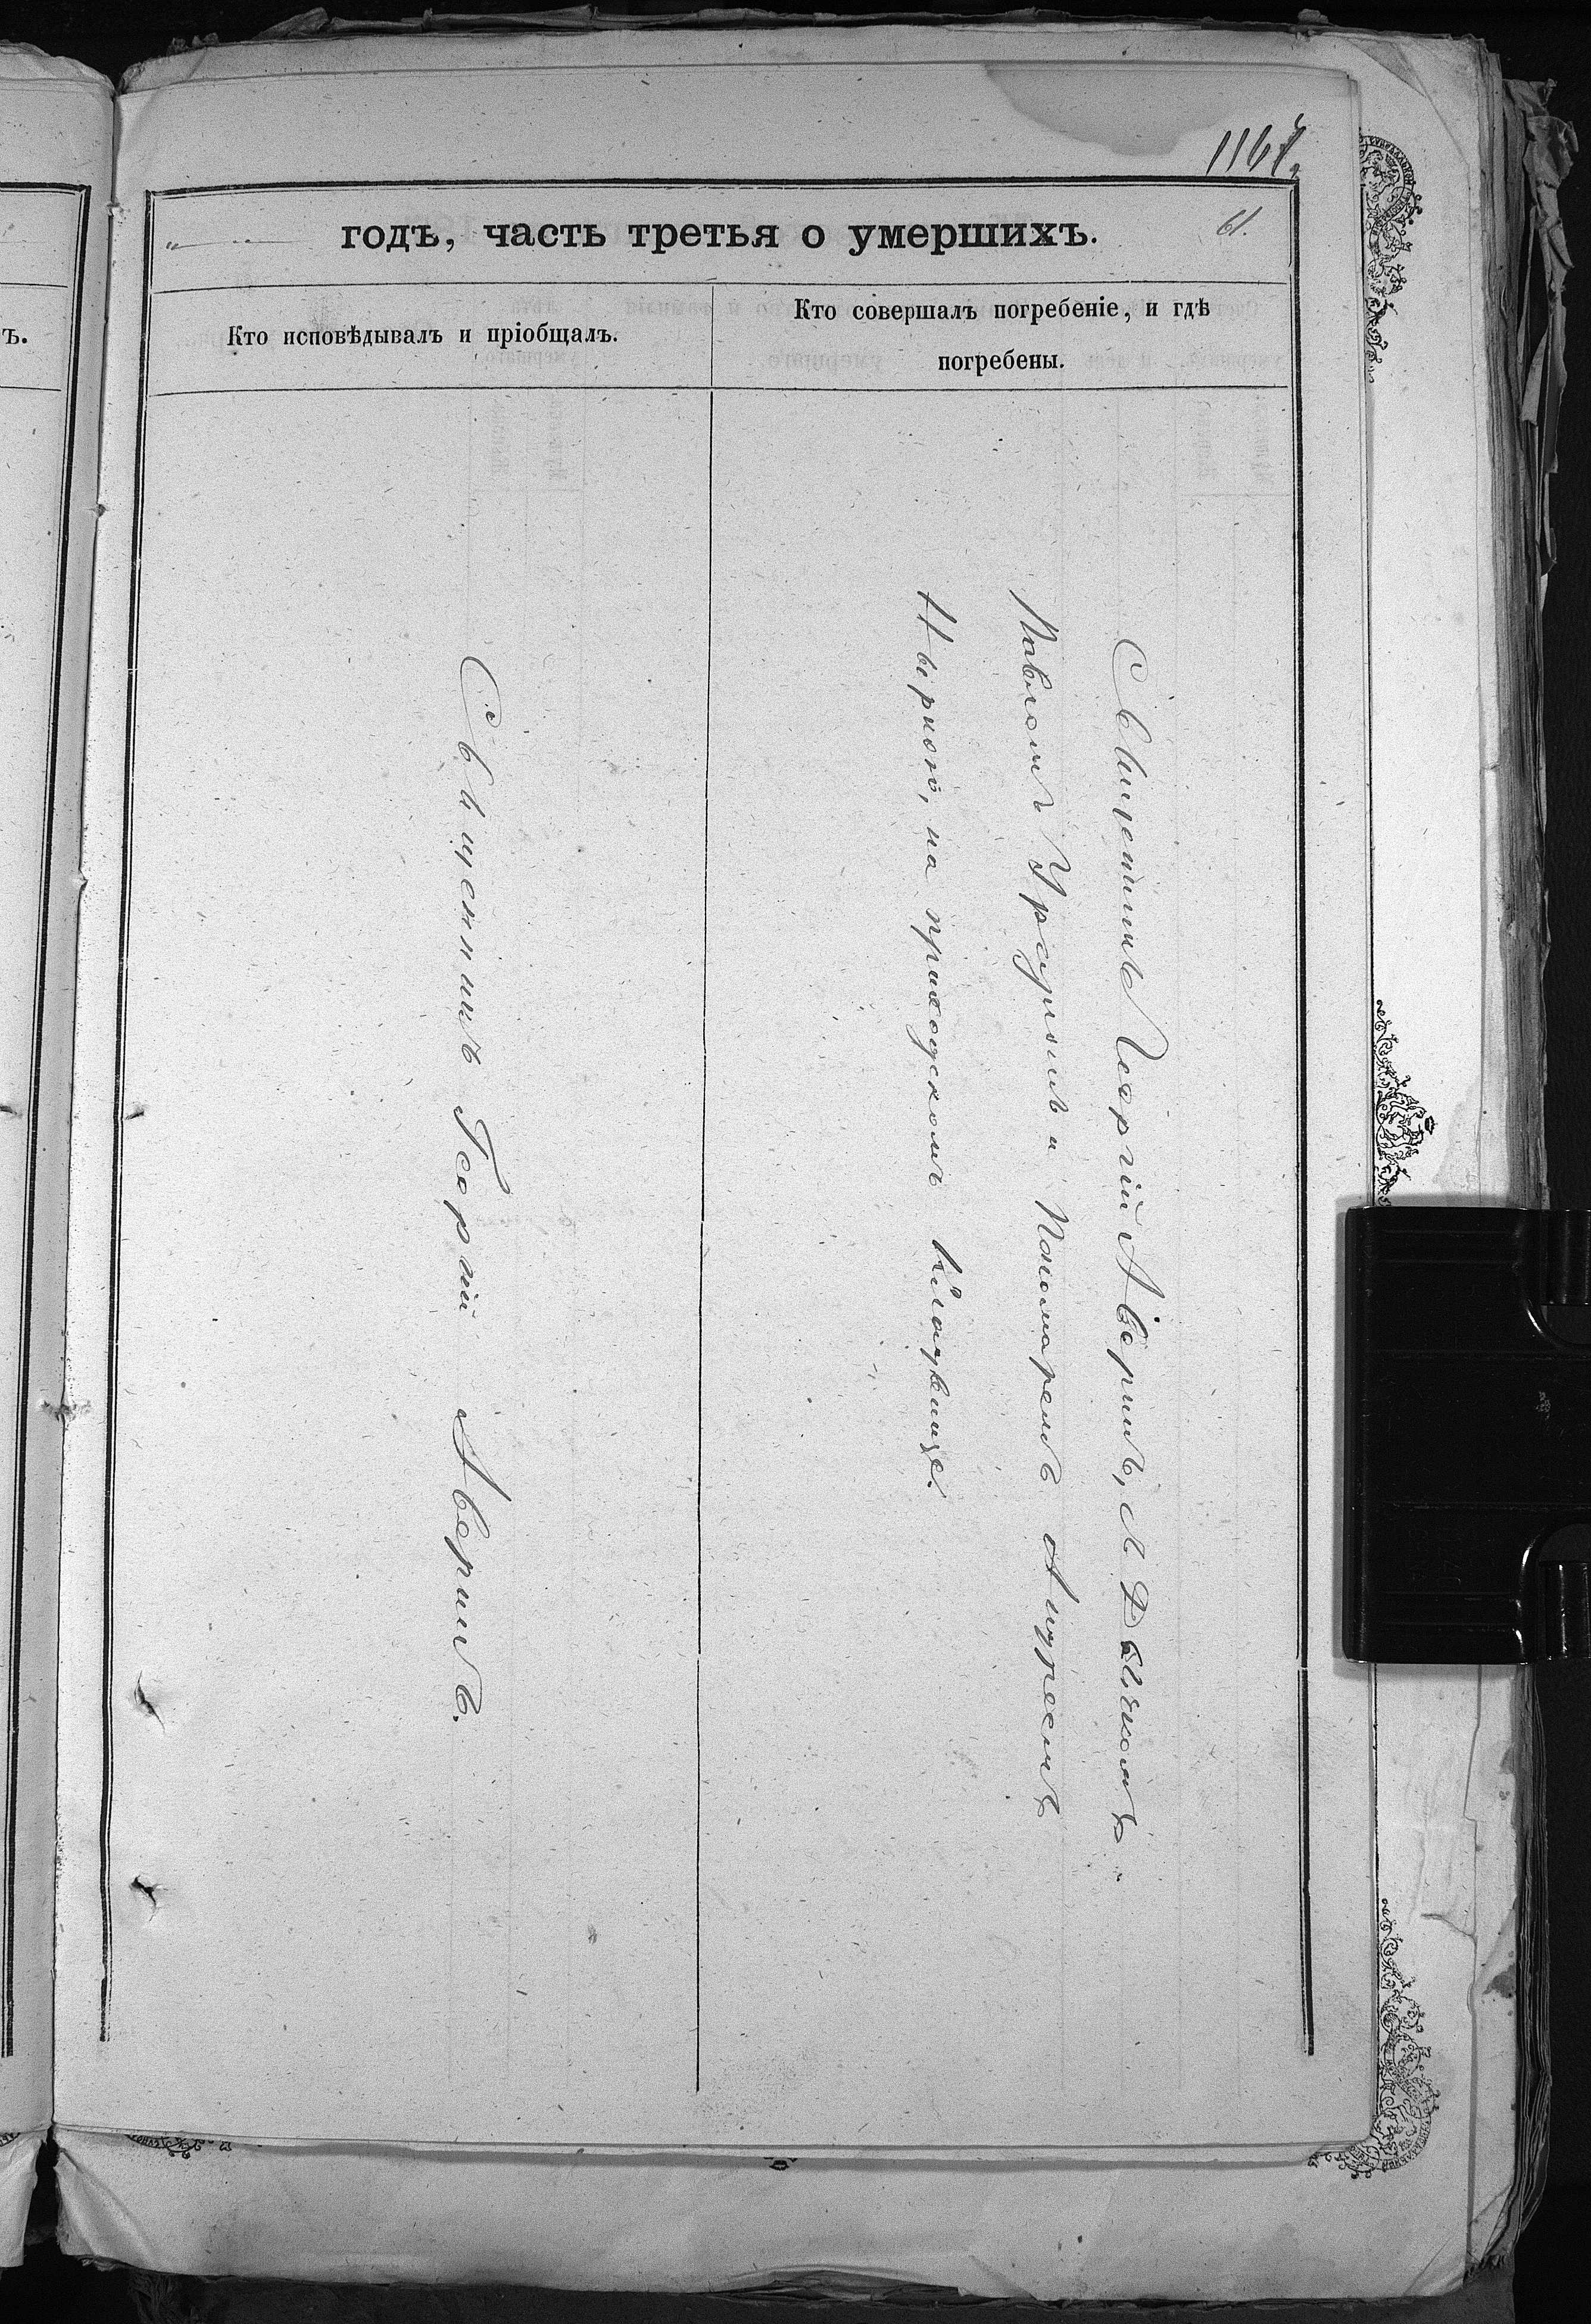 1167
61.
годъ, часть третья о умершихъ.
Кто исповѣдывалъ и пріобщалъ.
Кто совершалъ погребеніе, и гдѣ
погребены.
Священникъ Георгій Аверинъ.
Священникъ Георгій Аверинъ, съ Дьякомъ
Павломъ и Пономаремъ Андреемъ
на приходскомъ кладбищѣ.
ъ.